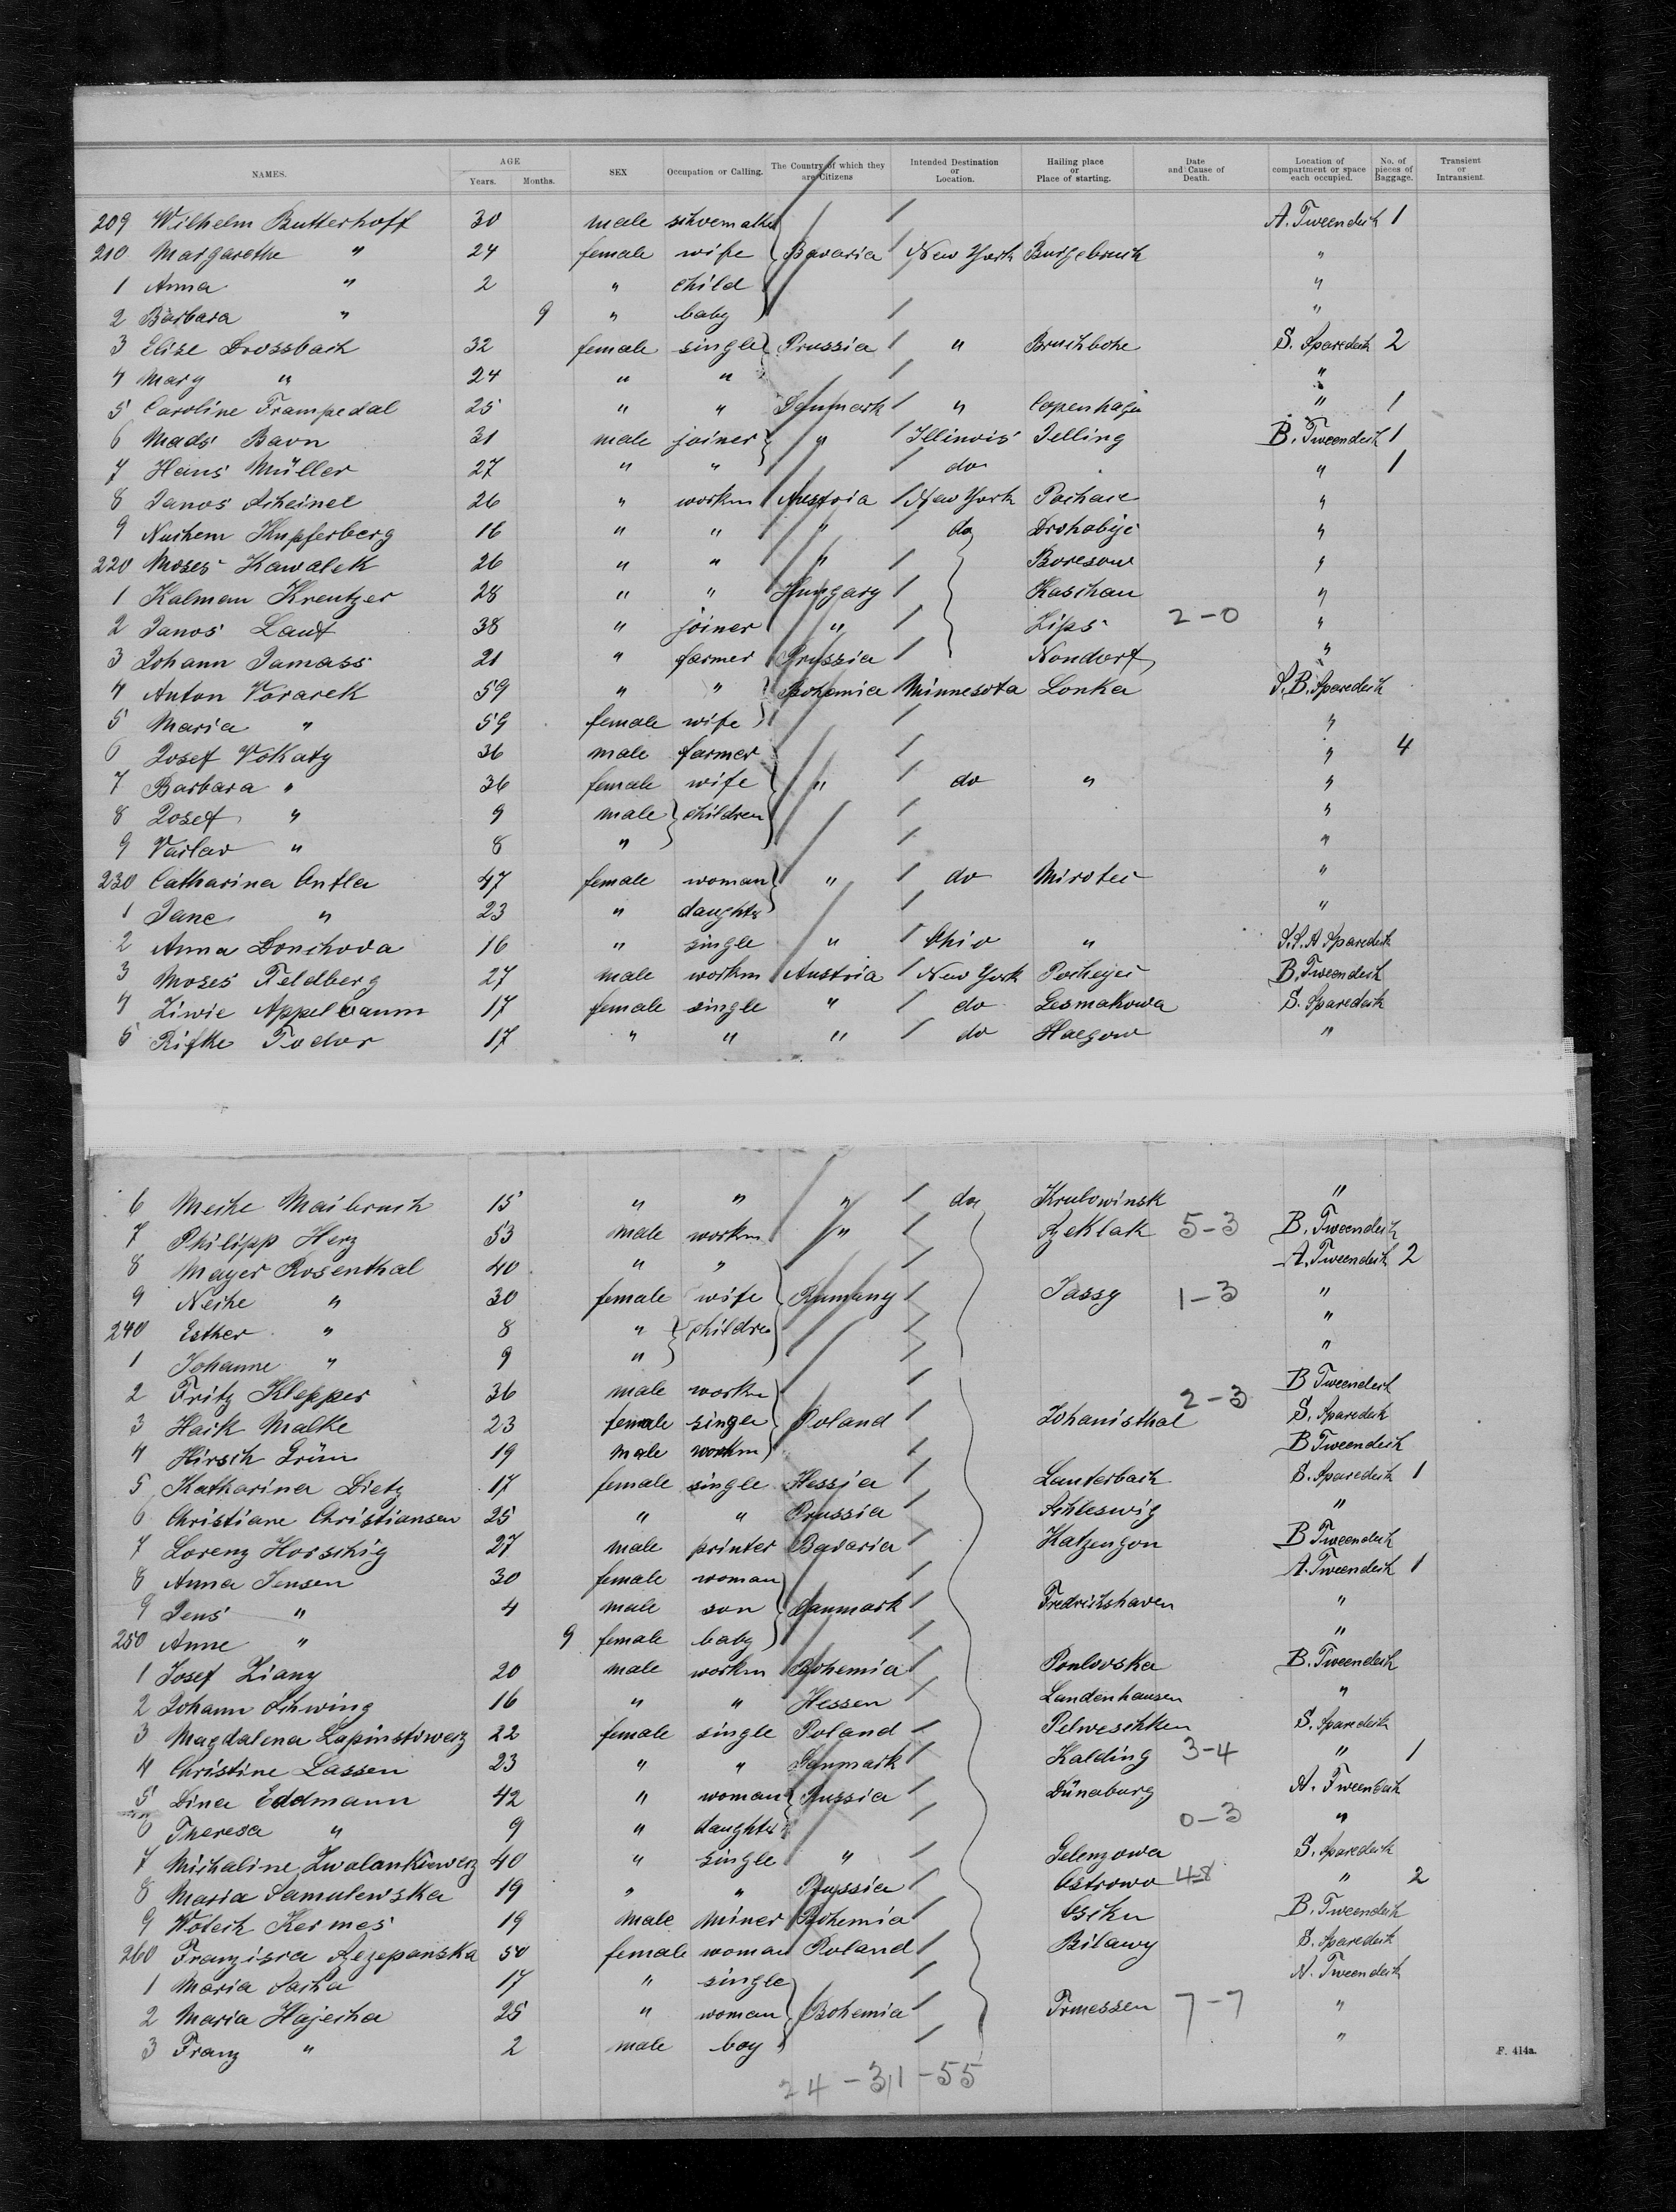 NAMES. AGE Years. Months. SEX Occupation or Calling. The Country of which they are Citizens Intended Destination or Location. Hailing place or Place of starting. Date and Cause of Death. Location of compartment or space each occupied. No. of pieces of Baggage. Transient or Intransient.
209 Wilhelm Butterhoff 30 male A. Tweendeck 1
210 Margarethe " 24 female wife Bavaria New York Burgebrach "
1 Anna " 2 " child "
2 Barbara " 9 " baby "
3 Elise Drossbach 32 female single Prussia " S. Sparedeck 2
4 Marg " 24 " " "
5 Caroline Frampedal 25 " " Danmark " Copenhagen " 1
6 Mads Bavn 31 male joiner " Illinois Jelling B. Tweendeck 1
7 Hans Müller 27 " " do " 1
8 Janos Scheinel 26 " workm Austria New York "
9 Nuchem Kupferberg 16 " " " do Drohobije "
220 Moses Kawalek 26 " " " Boresow "
1 Kalman Kreutzer 28 " " Hungary Kaschau "
2 Janos Lauf 38 " joiner " Zips 2-0 "
3 Johann Damass 21 " farmer Prussia Nondorf "
4 Anton Vorarek 59 " " Bohemia Minnesota Lonka S.B. Sparedeck
5 Maria " 59 female wife "
6 Josef Vokaty 36 male farmer " 4
7 Barbara " 36 female wife " do " "
8 Josef " 9 male children "
9 Vaclav " 8 " "
230 Catharina 47 female woman " do Mirotec "
1 Jane " 23 " daughter "
2 Anna Donchova 16 " single " Ohio " S.S.A Sparedeck
3 Moses Feldberg 27 male workm Austria New York B. Tweendeck
4 Ziwie Appelbaum 17 female single " do Lesmakowa S. Sparedeck
5 Rifke Fodor 17 " " " do Haegow "
6 Meche Maibruch 15 " " " do Krulowinsk "
7 Philipp Herz 53 male workm " 5-3 B. Tweendeck
8 Mayer Rosenthal 40 " " A. Tweendeck 2
9 Neche " 30 female wife Rumany Jassy 1-3 "
240 Esther " 8 " children "
1 Johanne " 9 " "
2 Fritz Klepper 36 male workm B Tweendeck
3 Haik Malke 23 female single Poland Johanisthal 2-3 S. Sparedeck
4 Hirsch Grün 19 male workm B Tweendeck
5 Katharina Dietz 17 female single Hessia Lauterbach S. Sparedeck 1
6 Christiane Christiansen 25 " " Prussia Schleswig "
7 Lorenz Horschig 27 male printer Bavaria B Tweendeck
8 Anna Jensen 30 female woman A. Tweendeck 1
9 Jens " 4 male son Danmark Fredrichshaven "
250 Anne " 9 female baby "
1 Josef Ziany 20 male workm Bohemia Poulovska B. Tweendeck
2 Johann Schwing 16 " " Hessen Landenhausen "
3 Magdalena 22 female single Poland Pelweschken S. Sparedeck
4 Christine Lassen 23 " " Danmark Kalding 3-4 " 1
5 Dina Eddmann 42 " woman Russia Dünaburg A. Tweendeck
6 Theresa " 9 " daughter 0-3 "
7 Michaline Zwalankiewerz 40 " single " Gelenzowa S. Sparedeck
8 Maria Samulewska 19 " " Prussia Ostrowo 4-8 " 2
9 Wotech Kermes 19 male miner Bohemia Osiku B. Tweendeck
260 Franzisca Szezepanska 50 female woman Poland Bilawy S. Sparedeck
1 Maria 17 " single N. Tweendeck
2 Maria Hajecha 25 " woman Bohemia Prmessen 7-7 "
3 Franz " 2 male boy "
24-31-55
F. 414a.